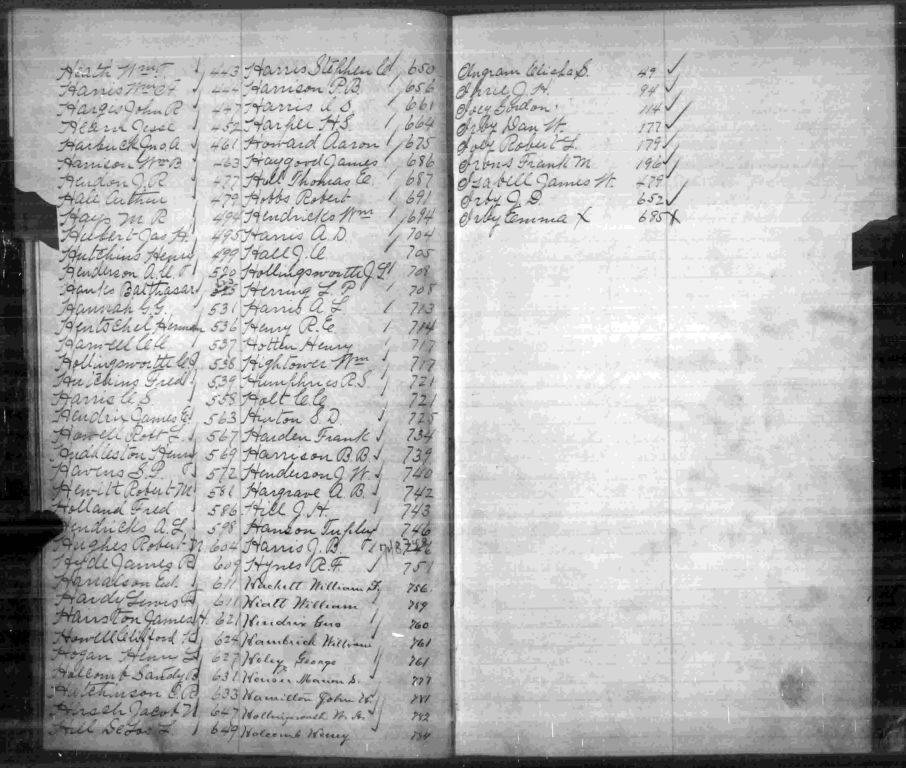 Heath Wm T. 443
Harris Wm H 444
Harges John R 447
Hearn Jesse 452
Harbuck Jno. A 461
Harrison Wm B 463
Herdon J. R. 477
Hale Arthur 479
Hays M R 494
Hubert Jas H. 495
Hutchins Henry 499
Henderson A. 520
Hanks Balthasar
Hannah G. G. 531
Hentschel Herman 536
Harwell 537
Hollingsworth 538
Hutchins Fred 539
Harris C. S. 558
Hendrix James E. 563
Howell Robt L. 567
Huddleston Henry 569
Havens S. P. 572
Hewitt Robert M 581
Holland Fred 586
Hendricks A. L. 598
Hughes Robert N 604
Hyde James B 609
Haralson 611
Hardy Lewis 611
Hairston James H. 621
Howell Clifford 624
Hogan Henry L 627
Holcomb Sandy B 631
Hutchinson C. B. 633
Hirsch Jacob N 647
Hill DeLos L. 649
Harris Stephen C 650
Harrison P. B. 656
Harris A S. 661
Harper H. S. 664
Howard Aaron 675
Haygood James 686
Hill Thomas E. 687
Hobbs Robert 691
Hendricks Wm 694
Harris A. D 704
Hall J. C 705
Hollingsworth J. L 708
Herring L. P. 708
Harris A. L 713
Henry R. E 714
Hotten Henry 717
Hightower Wm 717
Humphries R. S. 721
Holt C. C. 721
Hinton S. D 725
Harden Frank 734
Harrison B. B. 739
Henderson J. W. 740
Hargrave A. B. 742
Hill J. H. 743
Hanson 746
Harris J. B.
Hynes R. F. 751
Hackett William 756
Hiatt William 759
Hendrix Gus 760
Hambrick William 761
George 761
Marion S. 777
Hamilton John W. 781
Hollingsworth 782
Holcomb Henry 784
Ingram Elisha S. 49 ✓
April J. H. 94 ✓
Ivey Gordon 114 ✓
Irby Dan W. 177 ✓
Ivey Robert L. 179 ✓
Irons Frank M. 196 ✓
Isabell James W. 479
Irby J. D 652 ✓
Irby Emma X 685 X